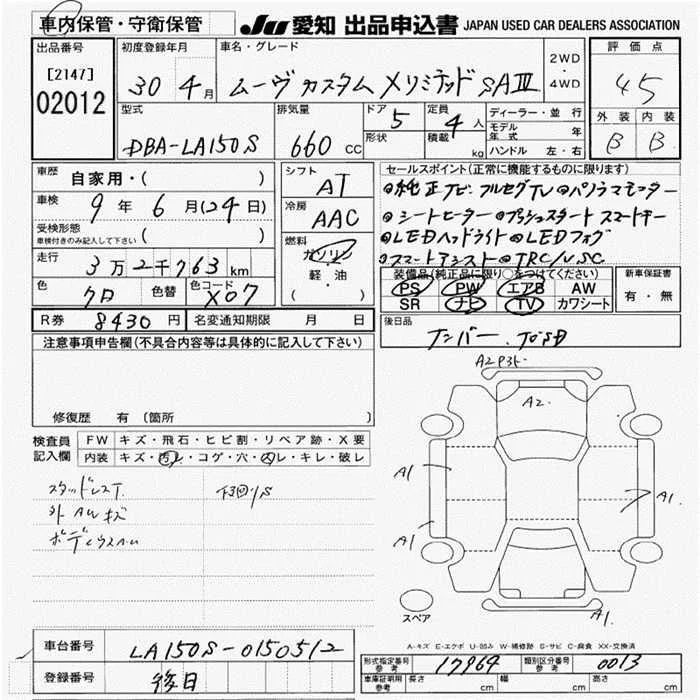 車内保管・守衛保管 JU 愛知 出品申込書 JAPAN USED CAR DEALERS ASSOCIATION
出品番号 [2147] 02012
初度登録年月 30 4月
車名・グレード ムーヴ カスタム Xリミテッド SAⅢ
2WD・4WD
評価点 4.5
外装 内装
B B
型式 DBA-LA150S
排気量 660 cc
ドア 5
形状
定員 4人
積載 kg
ディーラー・並行
モデル年式 年
ハンドル 左・右
車歴 自家用・( )
車検 9年6月(24日)
受検形態 ( )
車検付きのみ記入して下さい
走行 3万2千763km
色 クロ 色替 色コード X07
シフト AT
冷房 AAC
燃料 ガソリン
軽・油
( )
セールスポイント(正常に機能するものに限ります)
◎純正ナビ フルセグTV ◎パノラマモニター
◎シートヒーター ◎プッシュスタート スマートキー
◎LEDヘッドライト ◎LEDフォグ
◎スマートアシスト ◎TRC/VSC
装備品(純正品に限り○をつけてください)
PS PW エアB AW
SR ナビ TV カワシート
新車保証書
有・無
R券 8430円 名変通知期限 月 日
後日品 ナンバー.
注意事項申告欄(不具合内容等は具体的に記入して下さい)
修復歴 有 (箇所 )
検査員記入欄
FW キズ・飛石・ヒビ割・リペア跡・X要
内装 キズ・汚レ・コゲ・穴・スレ・キレ・破レ
スタッドレスT. 下回りS
外 AWキズ
ボディウスヘコ
A2P35-
A2.
A1 A1
A1
A1.
スペア
A-キズ E-エクボ U-凹み W-補修跡 S-サビ C-腐食 XX-交換済
車台番号 LA150S-0150512
登録番号 後日
形式指定番号 参考 17964 類別区分番号 参考 0013
車庫証明用 参考 長さ cm 幅 cm 高さ cm